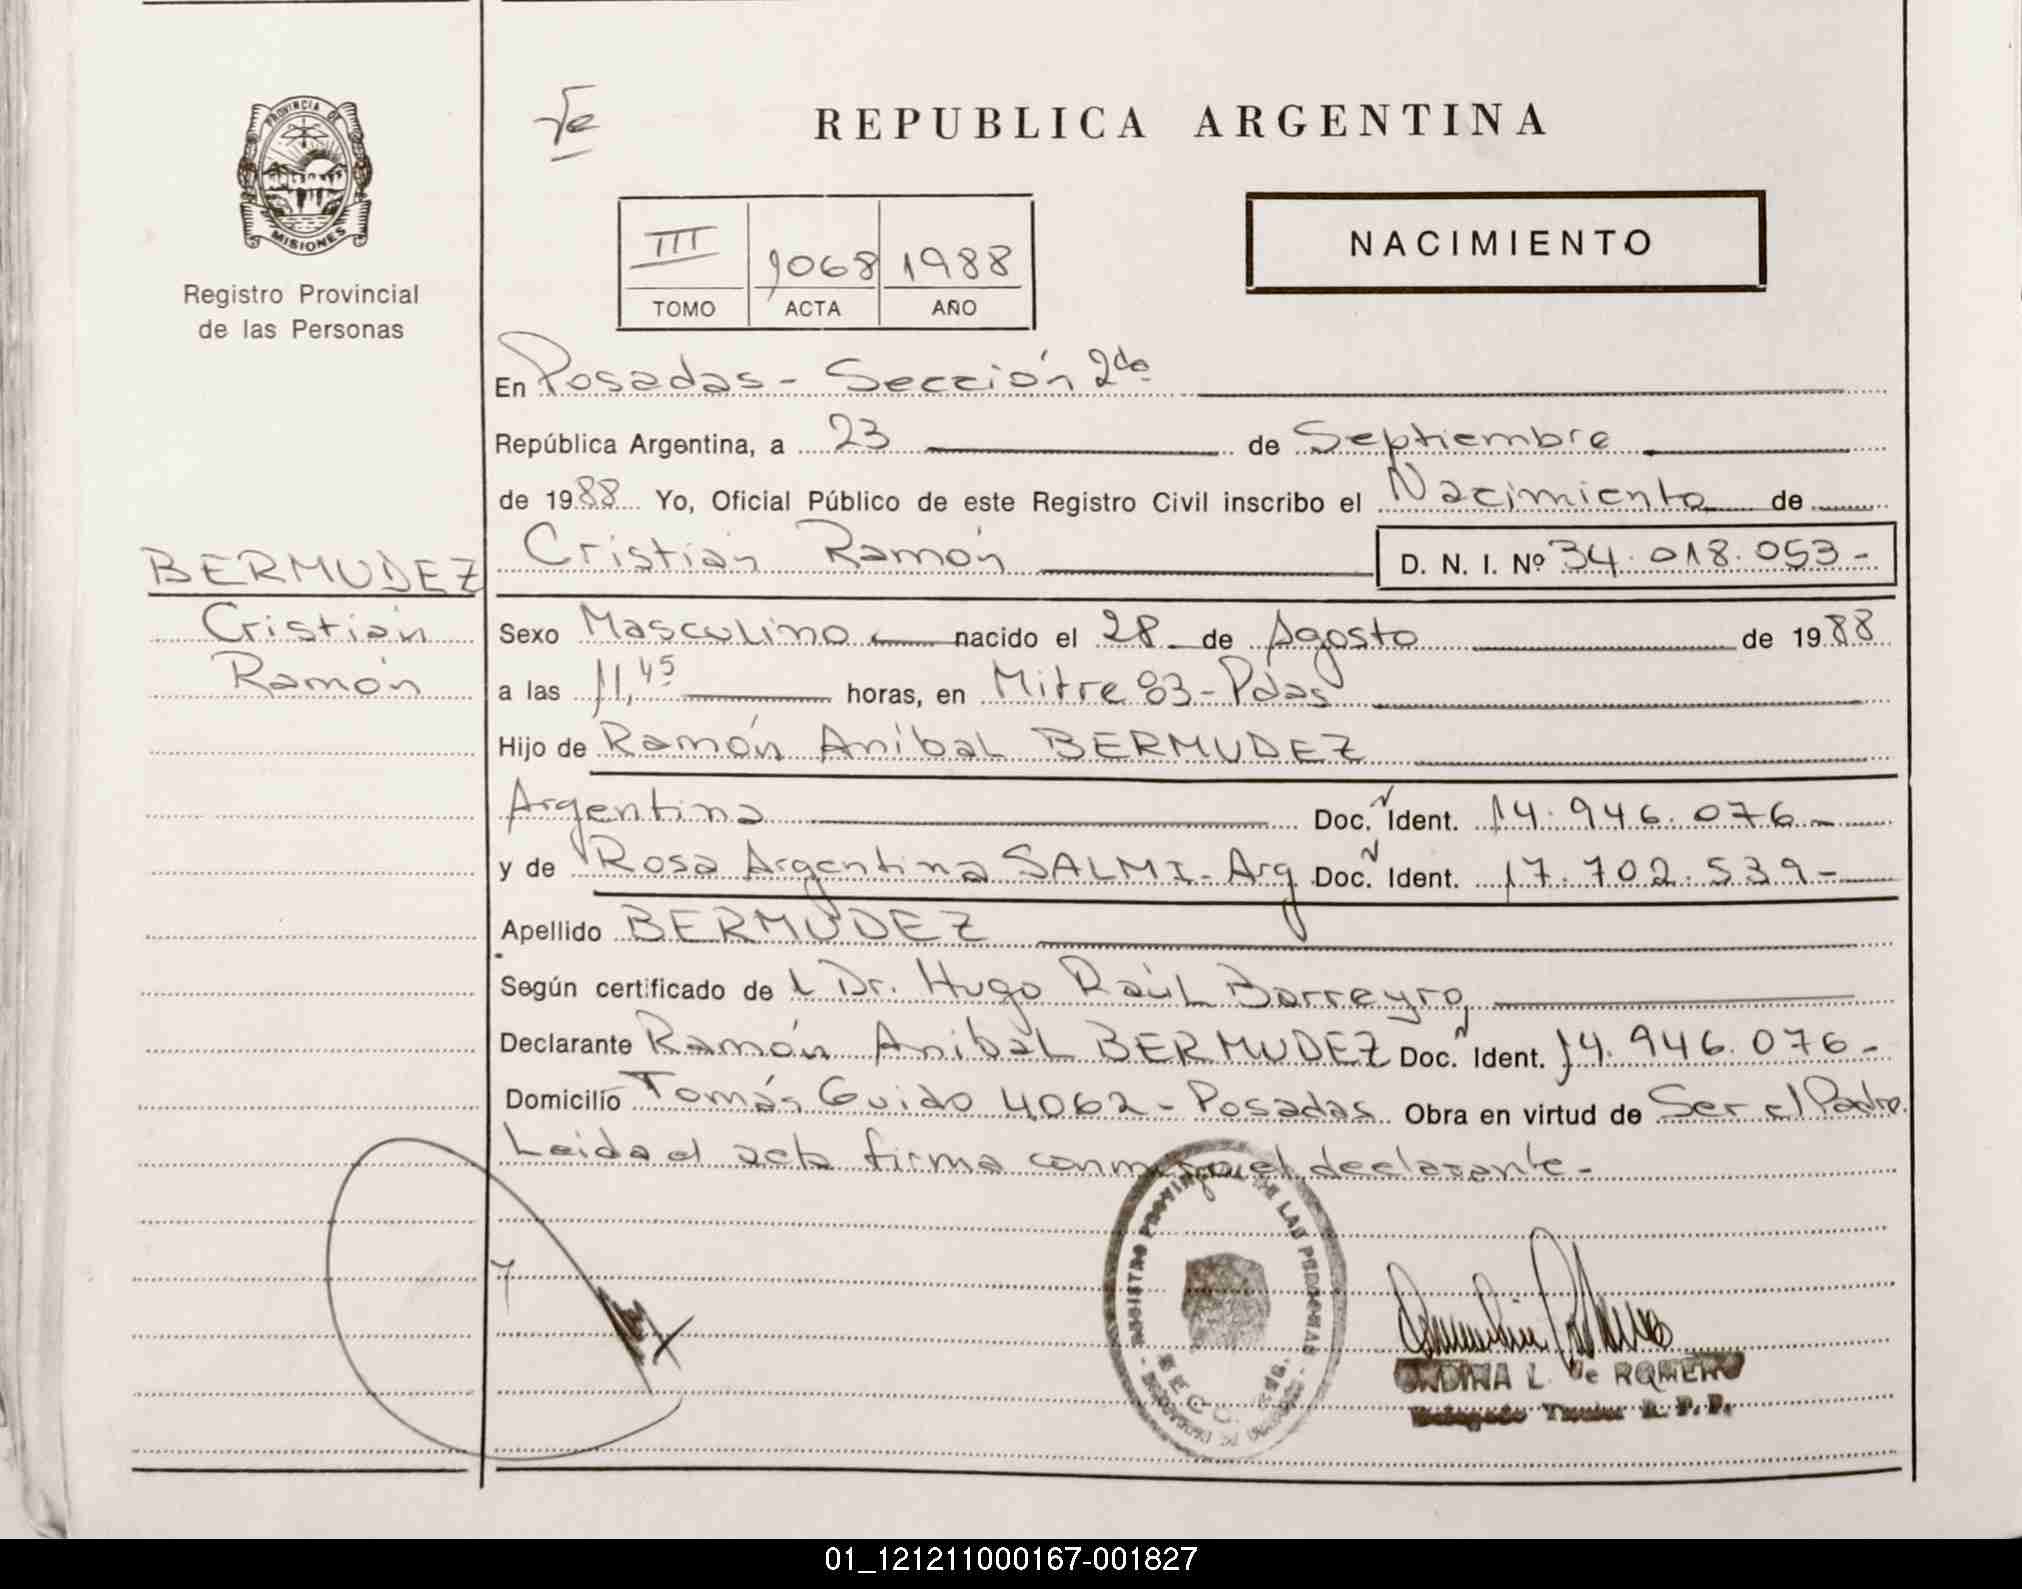 PROVINCIA DE
MISIONES
Registro Provincial
de las Personas
REPUBLICA ARGENTINA
NACIMIENTO
III 1068 1988
TOMO ACTA AÑO
En Posadas - Sección 2da
República Argentina, a 23 de Septiembre
de 1988 Yo, Oficial Público de este Registro Civil inscribo el Nacimiento de
BERMUDEZ
Cristian
Ramón
Cristian Ramón D. N. I. Nº 34.018.053-
Sexo Masculino nacido el 28 de Agosto de 1988
a las 11,45 horas, en Mitre 83-Pdas
Hijo de Ramón Anibal BERMUDEZ
Argentina Doc. Ident. 14.946.076-
y de Rosa Argentina SALMI- Arg Doc. Ident. 17.702.539-
Apellido BERMUDEZ
Según certificado del Dr. Hugo Raúl Barreyro
Declarante Ramón Anibal BERMUDEZ Doc. Ident. 14.946.076-
Domicilio Tomás Guido 4062 - Posadas Obra en virtud de Ser el Padre.
Leida el acta firma conmigo el declarante-
REGISTRO PROVINCIAL DE LAS PERSONAS
SECC. 2da.
ONDINA L. de ROMERO
Delegado Titular R. P. P.
01_121211000167-001827